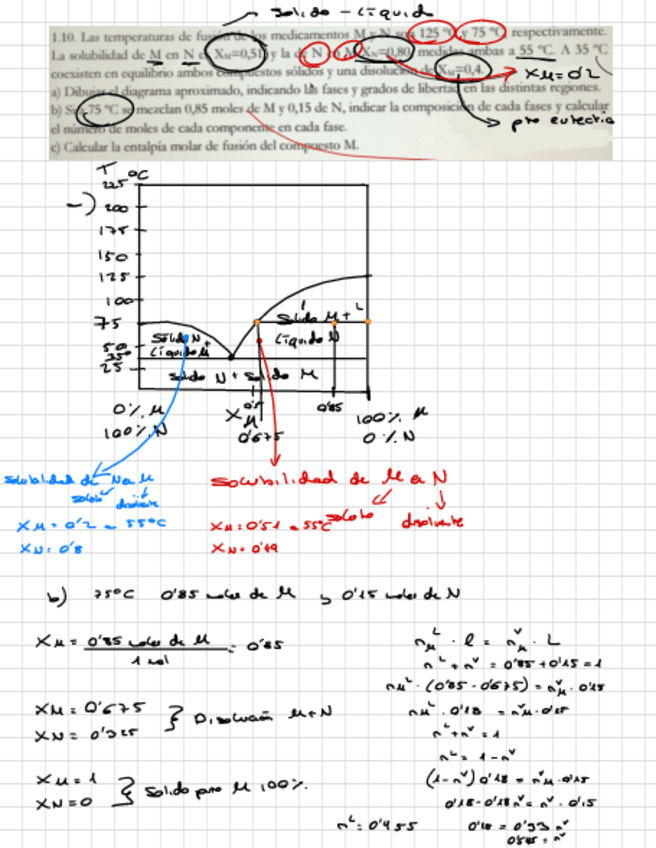 Solido - Líquido
1.10. Las temperaturas de fusión de los medicamentos M y N son 125 °C y 75 °C, respectivamente.
La solubilidad de M en N es X_M=0,51 y la de N en M X_N=0,80 medidas ambas a 55 °C. A 35 °C
coexisten en equilibrio ambos compuestos sólidos y una disolución de X_M=0,4.
X_M = 0'2
a) Dibujar el diagrama aproximado, indicando las fases y grados de libertad en las distintas regiones.
b) Si a 75 °C se mezclan 0,85 moles de M y 0,15 de N, indicar la composición de cada fases y calcular
el número de moles de cada componente en cada fase.
pto eutectico
c) Calcular la entalpía molar de fusión del compuesto M.
T °C
a)
225
200
175
150
125
100
75
50
35
25
Solido M + L
Líquido N
Sólido N +
Líquido M
Solido N + Solido M
0% M
100% N
X_M
0'675
0'85
100% M
0% N
Solubilidad de N en M
soluto
disolvente
X_M = 0'2 a 55°C
X_N = 0'8
Solubilidad de M en N
soluto
disolvente
X_M = 0'51 a 55°C
X_N = 0'49
b) 75°C 0'85 moles de M y 0'15 moles de N
X_M = 0'85 moles de M / 1 mol = 0'85
X_M = 0'675
X_N = 0'325
Disolución M+N
X_M = 1
X_N = 0
Solido puro M 100%
n_M^L · l = n_M^V · L
n^L + n^V = 0'85 + 0'15 = 1
n_M^L · (0'85 - 0'675) = n_M^V · 0'15
n_M^L · 0'18 = n_M^V · 0'15
n^L + n^V = 1
n^L = 1 - n^V
(1-n^V) 0'18 = n_M^V · 0'15
0'18 - 0'18 n^V = n^V · 0'15
0'18 = 0'33 n^V
0'545 = n^V
n^L = 0'455